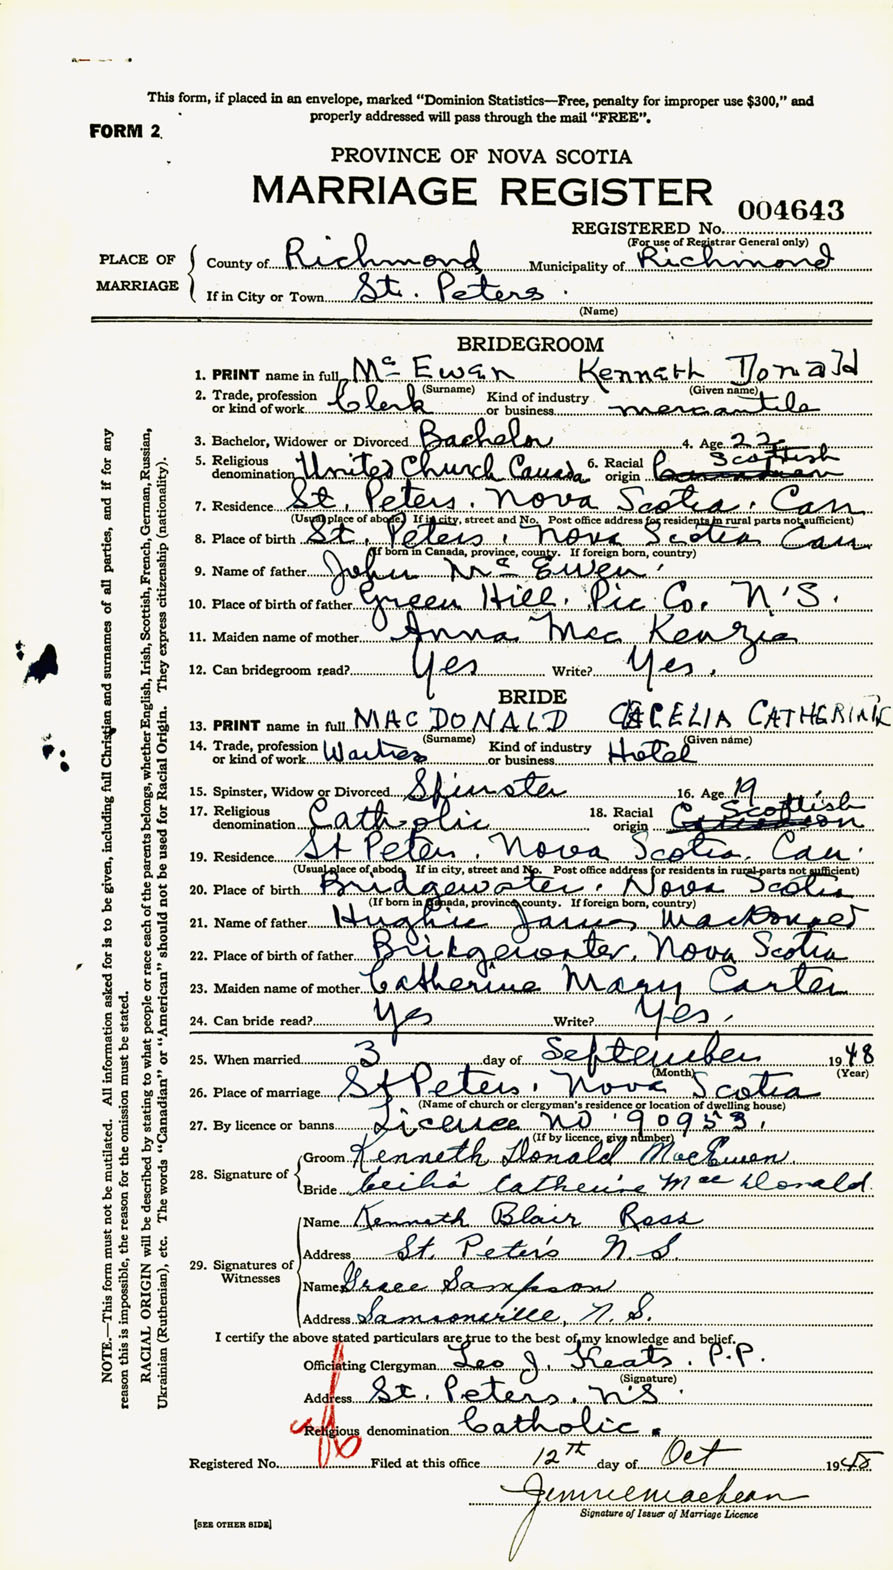 This form, if placed in an envelope, marked “Dominion Statistics—Free, penalty for improper use $300,” and
properly addressed will pass through the mail “FREE”.
FORM 2.
PROVINCE OF NOVA SCOTIA
MARRIAGE REGISTER
004643
REGISTERED No.
(For use of Registrar General only)
PLACE OF MARRIAGE
County of Richmond Municipality of Richmond
If in City or Town St. Peters.
(Name)
BRIDEGROOM
1. PRINT name in full Mc Ewan Kenneth Donald
(Surname) (Given name)
2. Trade, profession or kind of work Clerk Kind of industry or business mercantile
3. Bachelor, Widower or Divorced Bachelor 4. Age 22
5. Religious denomination United Church Canada 6. Racial origin Scottish
7. Residence St. Peters, Nova Scotia. Can
(Usual place of abode. If in city, street and No. Post office address for residents in rural parts not sufficient)
8. Place of birth St. Peters, Nova Scotia Can
(If born in Canada, province, county. If foreign born, country)
9. Name of father John Mc Ewen
10. Place of birth of father Green Hill. Pic Co. N.S.
11. Maiden name of mother Anna Mac Kenzie
12. Can bridegroom read? Yes Write? Yes.
BRIDE
13. PRINT name in full MACDONALD CECELIA CATHERINE
(Surname) (Given name)
14. Trade, profession or kind of work Waitress Kind of industry or business Hotel
15. Spinster, Widow or Divorced Spinster 16. Age 19
17. Religious denomination Catholic 18. Racial origin Scottish
19. Residence St Peters, Nova Scotia, Can.
(Usual place of abode. If in city, street and No. Post office address for residents in rural parts not sufficient)
20. Place of birth Bridgewater. Nova Scotia
(If born in Canada, province, county. If foreign born, country)
21. Name of father Hughie James MacDonald
22. Place of birth of father Bridgewater, Nova Scotia
23. Maiden name of mother Catherine Mary Carter
24. Can bride read? Yes Write? Yes.
25. When married 3 day of September 1948
(Month) (Year)
26. Place of marriage St Peters, Nova Scotia
(Name of church or clergyman's residence or location of dwelling house)
27. By licence or banns Licence no 90953.
(If by licence, give number)
28. Signature of
Groom Kenneth Donald MacEwen.
Bride Cecilia Catherine MacDonald.
29. Signatures of Witnesses
Name Kenneth Blair Ross
Address St. Peter's N.S.
Name Grace Sampson
Address Samsonville, N.S.
I certify the above stated particulars are true to the best of my knowledge and belief.
Officiating Clergyman Leo J. Keats. P.P.
(Signature)
Address St. Peters, N.S.
Religious denomination Catholic.
Registered No. Filed at this office 12th day of Oct 1948
Jennie MacLean
Signature of Issuer of Marriage Licence
[SEE OTHER SIDE]
NOTE.—This form must not be mutilated. All information asked for is to be given, including full Christian and surnames of all parties, and if for any
reason this is impossible, the reason for the omission must be stated.
RACIAL ORIGIN will be described by stating to what people or race each of the parents belongs, whether English, Irish, Scottish, French, German, Russian,
Ukrainian (Ruthenian), etc. The words “Canadian” or “American” should not be used for Racial Origin. They express citizenship (nationality).